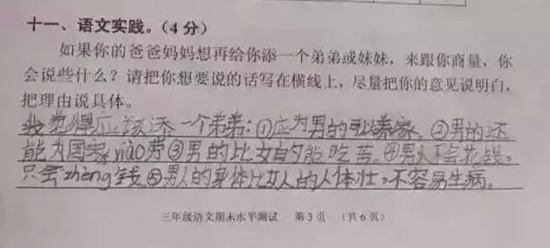 十一、语文实践。(4分)
如果你的爸爸妈妈想再给你添一个弟弟或妹妹，来跟你商量，你
会说些什么？请把你想要说的话写在横线上，尽量把你的意见说明白，
把理由说具体。
我觉得应该添一个弟弟：①应为男的可以养家。②男的还
能为国家xiào劳③男的比女的能吃苦。④男人不会花钱，
只会zhèng钱⑤男人的身体比女人的人体壮，不容易生病。
三年级语文期末水平测试 第3页 (共6页)